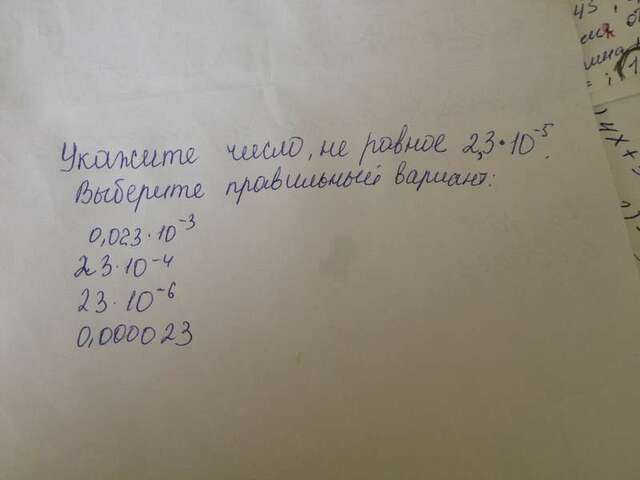 Укажите число, не равное 2,3·10⁻⁵.
Выберите правильный вариант:
0,023·10⁻³
23·10⁻⁴
23·10⁻⁶
0,000023